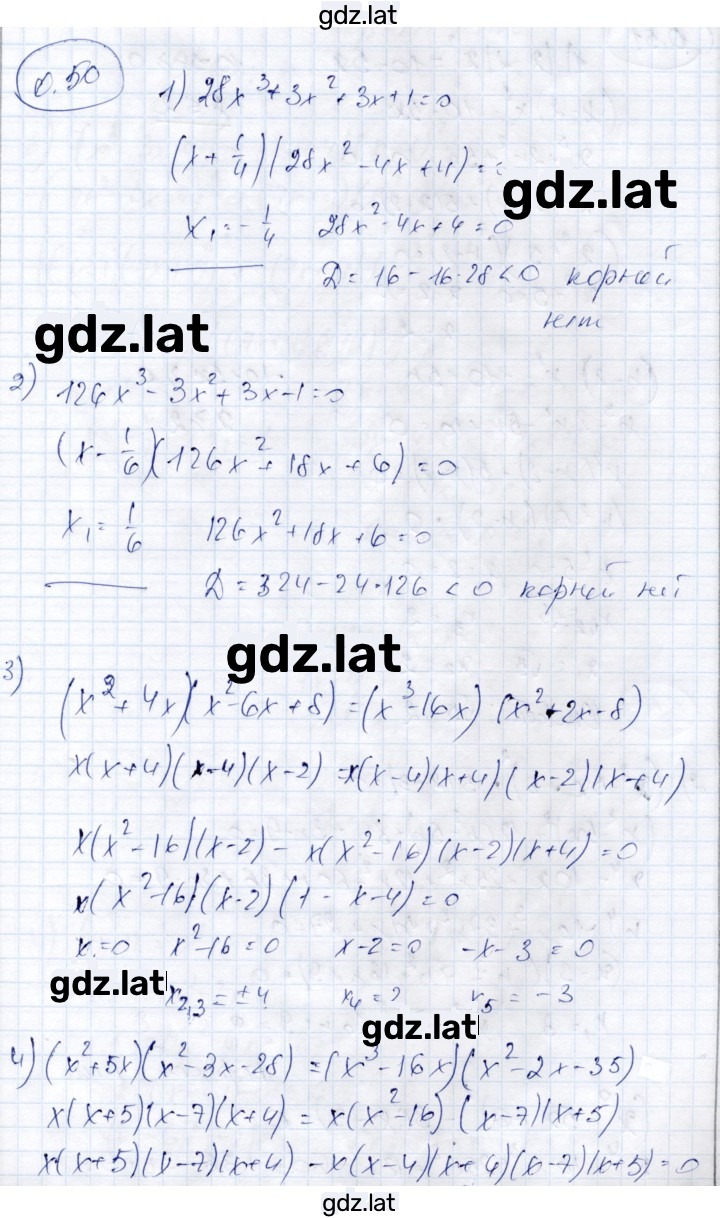 gdz.lat
0.50
1) 28x³+3x²+3x+1=0
(x+1/4)(28x²-4x+4)=
gdz.lat
x₁=-1/4 28x²-4x+4=0
D=16-16·28<0 корней
нет
gdz.lat
2) 126x³-3x²+3x-1=0
(x-1/6)(126x²+18x+6)=0
x₁=1/6 126x²+18x+6=0
D=324-24·126<0 корней нет
gdz.lat
3) (x²+4x)(x²-6x+8)=(x³-16x)(x²+2x-8)
x(x+4)(x-4)(x-2)=x(x-4)(x+4)(x-2)(x+4)
x(x²-16)(x-2)-x(x²-16)(x-2)(x+4)=0
x(x²-16)(x-2)(1-x-4)=0
x₁=0 x²-16=0 x-2=0 -x-3=0
gdz.lat
x₂,₃=±4 x₄=2 x₅=-3
gdz.lat
4) (x²+5x)(x²-3x-28)=(x³-16x)(x²-2x-35)
x(x+5)(x-7)(x+4)=x(x²-16)(x-7)(x+5)
x(x+5)(x-7)(x+4)-x(x-4)(x+4)(x-7)(x+5)=0
gdz.lat